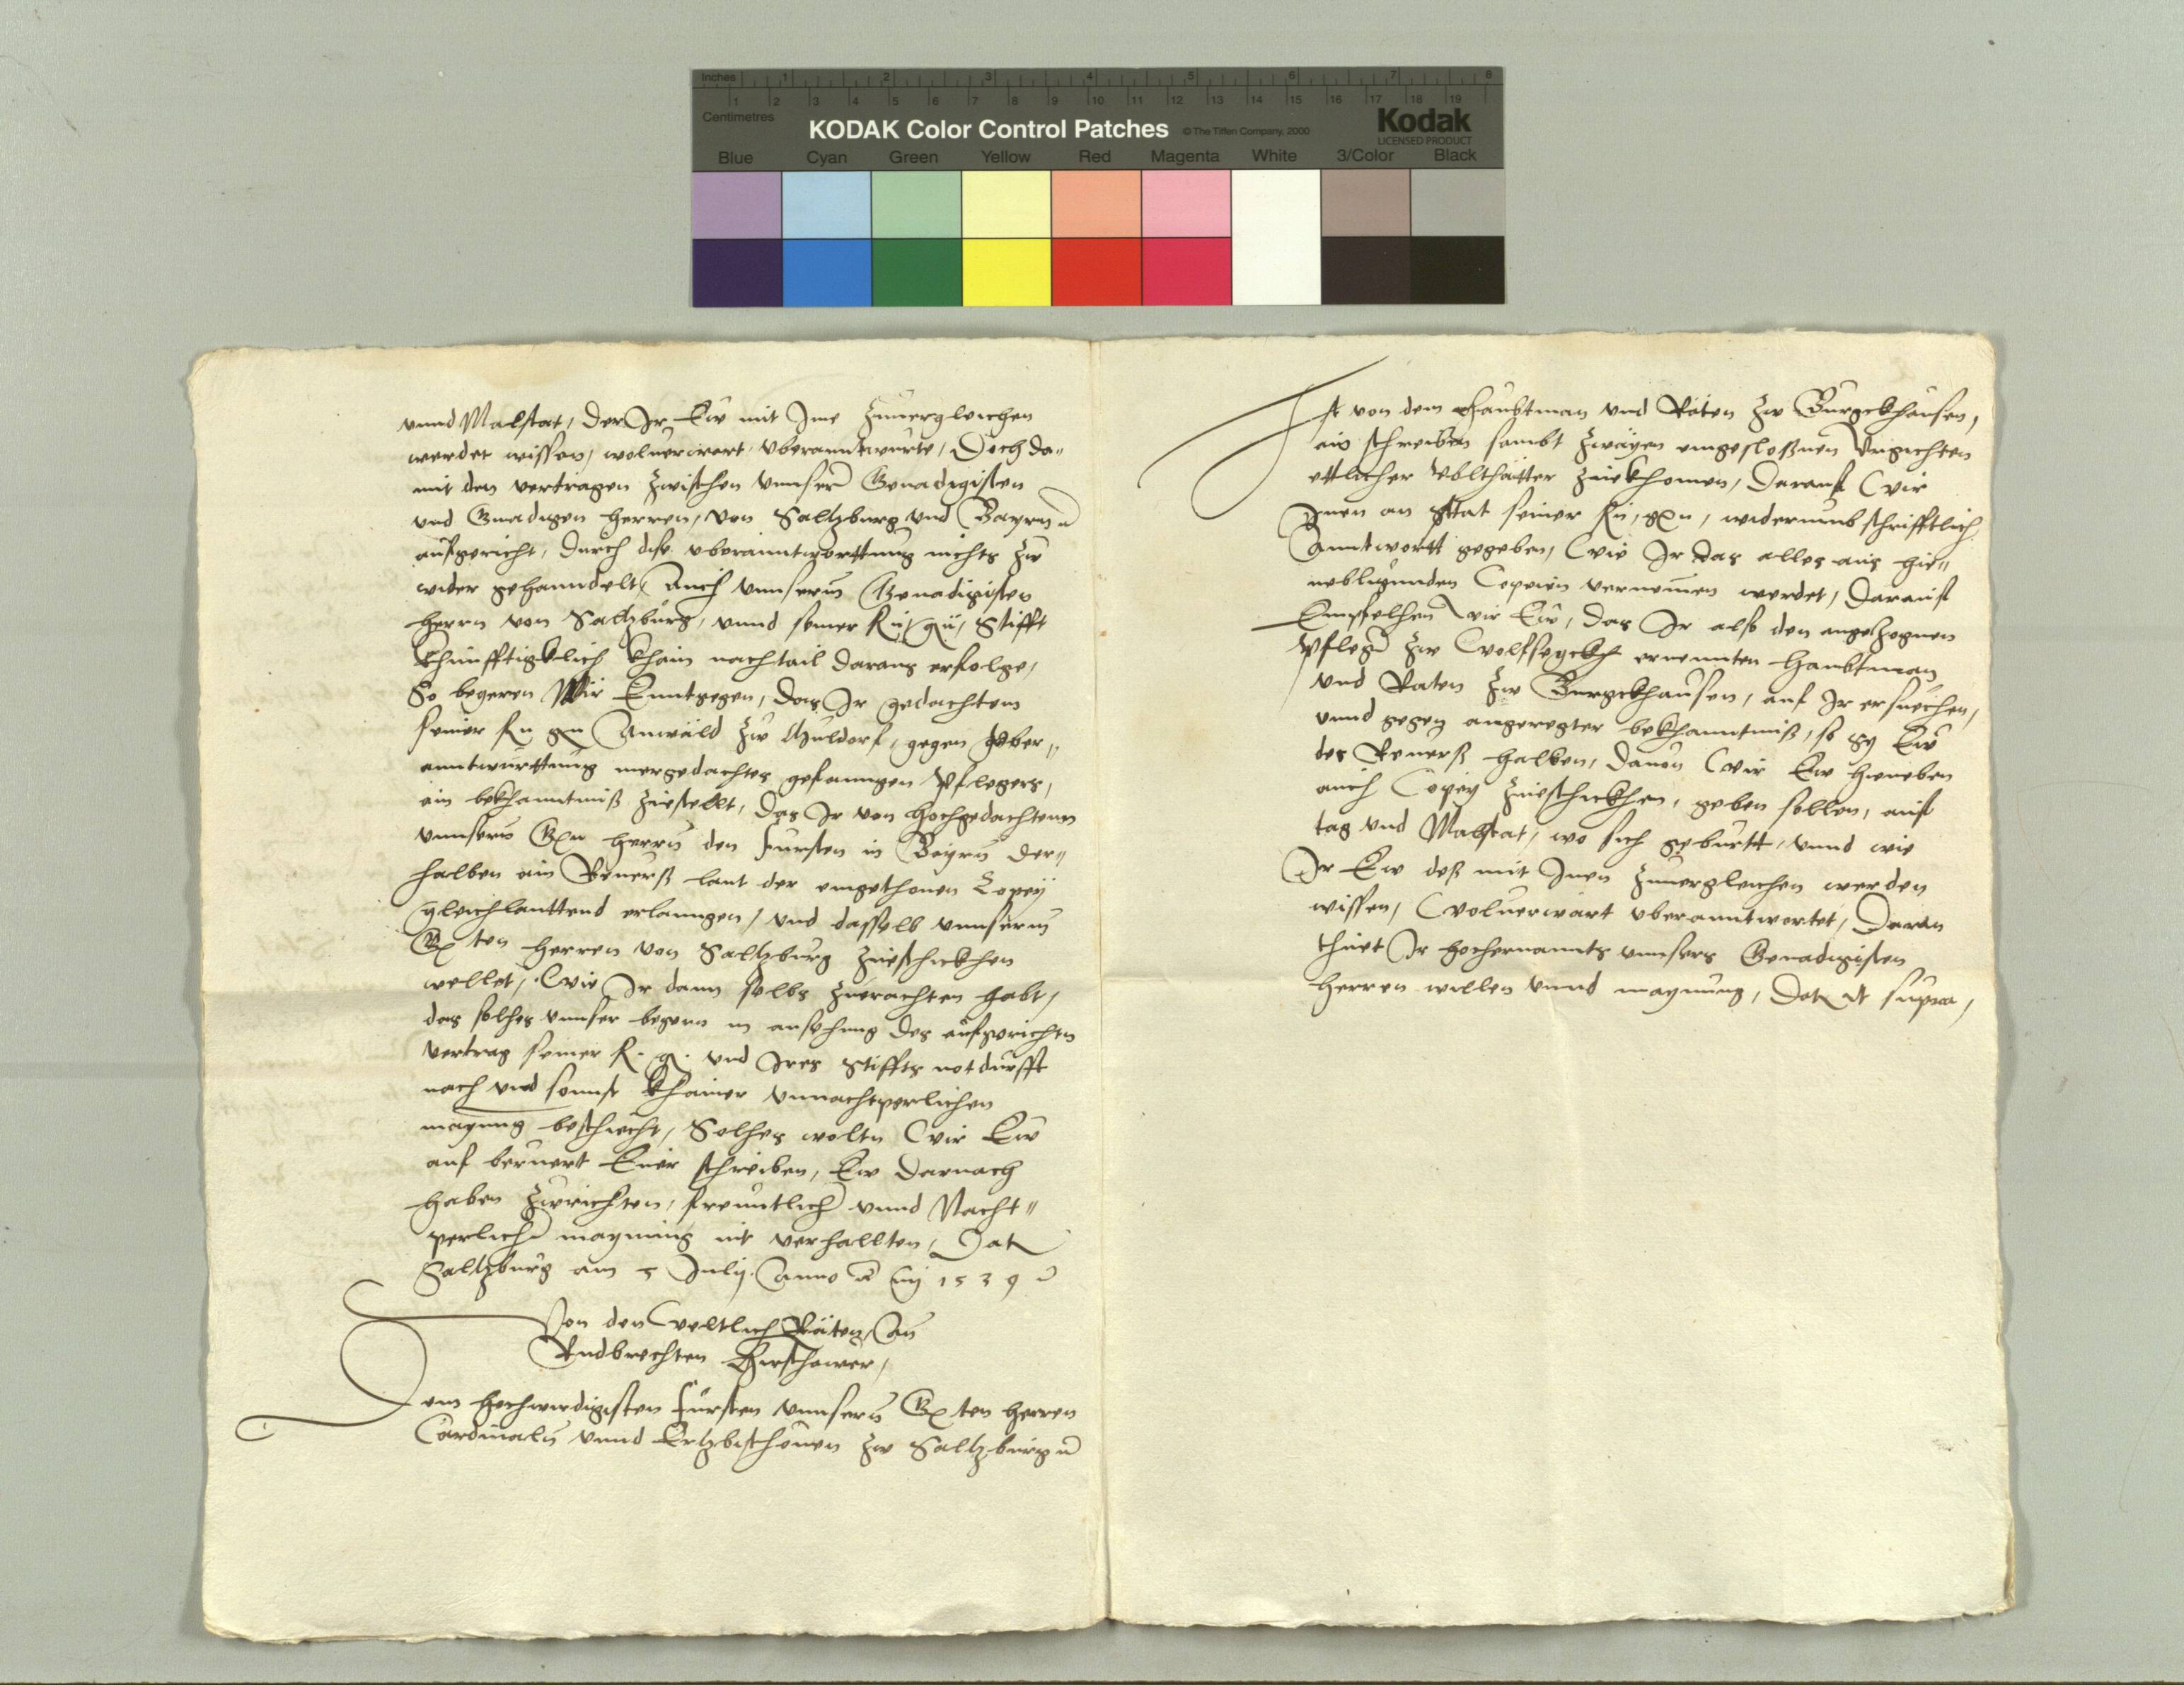 Inches 1 2 3 4 5 6 7 8
1 2 3 4 5 6 7 8 9 10 11 12 13 14 15 16 17 18 19
Centimetres
KODAK Color Control Patches © The Tiffen Company, 2000 Kodak
LICENSED PRODUCT
Blue Cyan Green Yellow Red Magenta White 3/Color Black
vnnd Malstat, Der Ir Ew mit Ime zuuergleichen
werdet wissen, woluerwart vberanntwurte, Doch da„
mit den vertragen zwischen vnnsern Genadigisten
vnd Gnadigen herren, von Saltzburg vnd Bayrn
aufgericht, durch dise vberanntworttung nichts zw
wider gehanndelt, Auch vnnserm Genadigisten
herrn von Saltzburg, vnnd seiner Stifft
khunfftigklich khain nachtail daraus erfolge,
So begeren Wir Enntgegen, Das Ir gedachtem
seiner Anwäld zw Muldorf, gegen vber„
anntwurttung mergedachtes gefanngen Pflegers,
ein bekhanntniß zuestellt, Das Ir von hochgedachten
vnnsern herrn den Fursten in Bayrn der„
halben ain Reuerß laut der eingethonen Copey
gleichlauttend erlanngen, vnd dasselb vnnserm
herren von Saltzburg zueschickhen
wellet, Wie Ir dann selbs zuerachten habt,
das solhes vnnser begern in ansehung des aufgerichten
vertrag seiner f. g. vnd Ires Stiffts notdurfft
nach vnd sonnst khainer vnnachtperlichen
maynung beschiecht, Solhes wolten Wir Ew
auf beruert Euer schreiben, Ew darnach
haben zurichten, freuntlich vnnd Nacht„
perlicher maynung nit verhallten, Dat
Saltzburg am 5 July Anno 1539
Von den Weltlich Räten, An
Rudbrechten Hirschawer,
Dem hochwirdigisten Fürsten vnnserm herren
Cardinaln vnnd Ertzbischouen zw Saltzburg
Ist von dem Haubtman vnd Räten zw Burgkhausen,
ein schreiben sambt zwayen eingeschloßnen Vrgichten
ettlicher Vblthätter zuekhomen, Darauf Wir
Inen an Stat seiner widerumb schrifftlich
Anntwortt gegeben, Wie Ir das alles aus hie„
nebligunden Copeien vernemen werdet, Darauf
Empfelhen wir Ew, das Ir also den angetzognen
Pfleger zw Wolfsegckh ernennten Haubtman
vnd Raten zw Burgckhausen, auf Ir ersuechen,
vnnd gegen angeregter bekhanntniß, so Sy Ew
des Reuerß halben, dauon Wir Ew hieneben
auch Copey zueschickhen, geben sollen, auf
tag vnd Malstat, wo sich geburtt, vnnd wie
Ir Ew deß mit Inen zuuergleichen werden
wissen, Woluerwart vberanntwortet, Daran
thuet Ir hochernannts vnnsers Genadigisten
herren willen vnnd maynung, Dat vt supra,